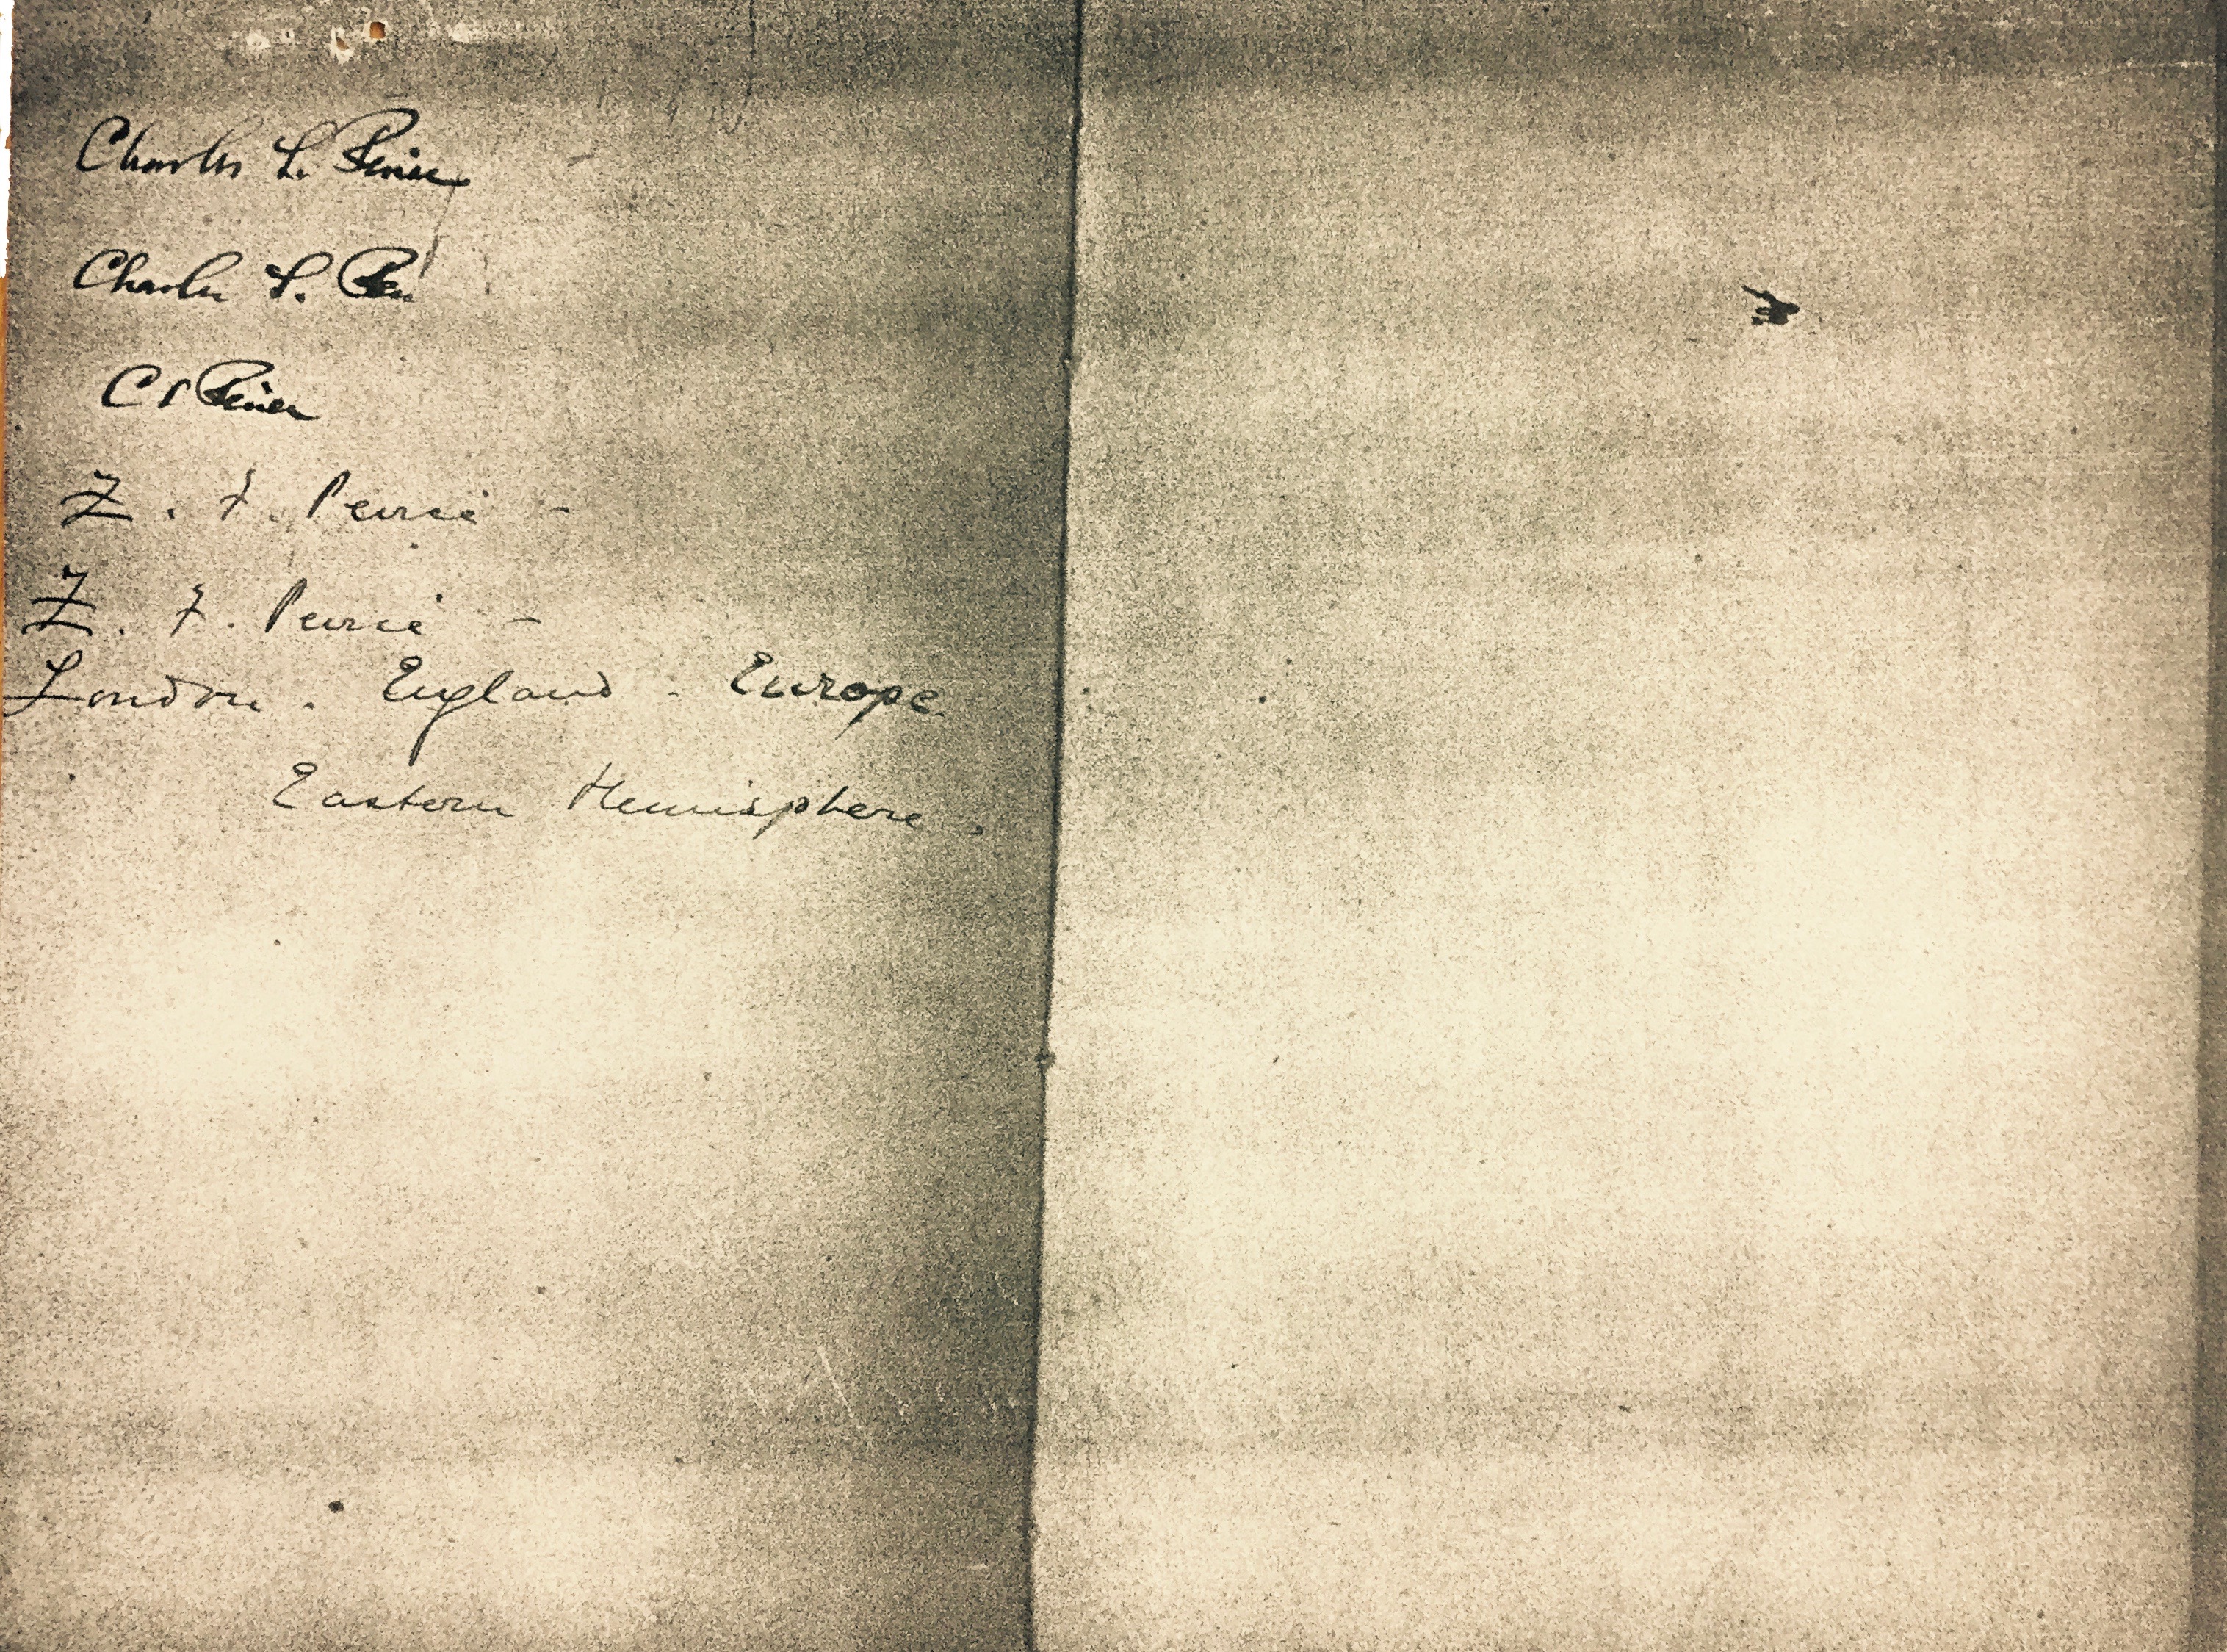 Charles S. Peirce
Charles S. Pei
C S Peirce
Z. F. Peirce -
Z. F. Peirce -
London. England - Europe
Eastern Hemisphere.